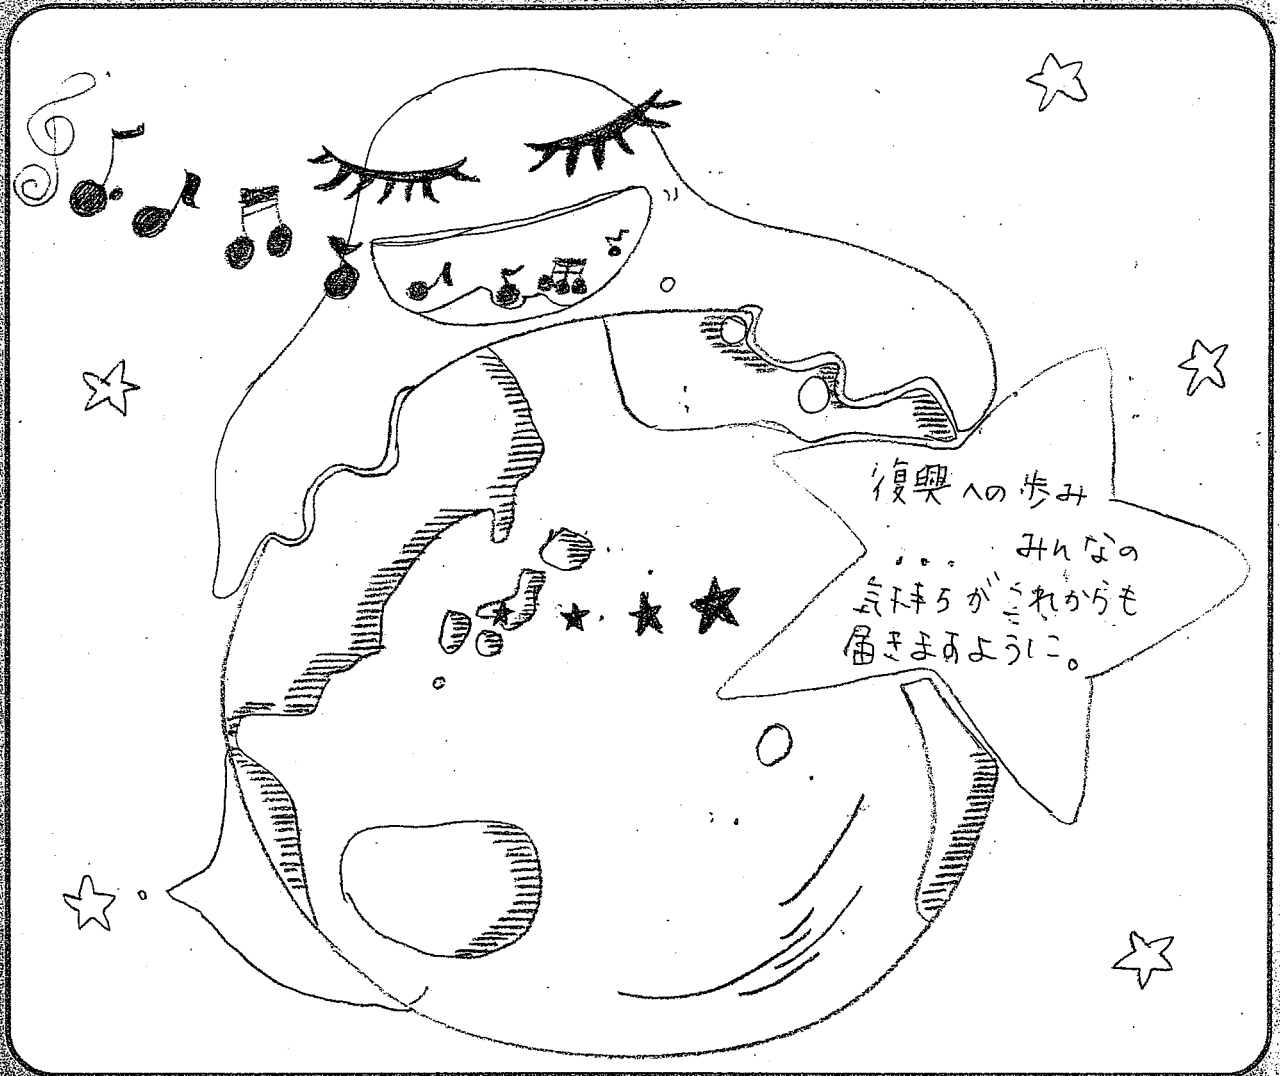 復興への歩み
みんなの
気持ちがこれからも
届きますように。